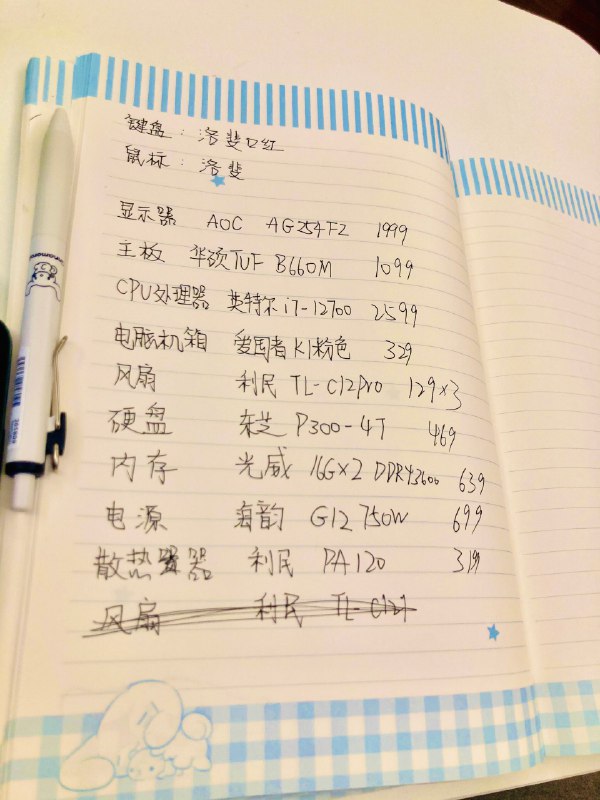 键盘：洛斐口红
鼠标：洛斐
显示器 AOC AG254FZ 1999
主板 华硕TUF B660M 1099
CPU处理器 英特尔 i7-12700 2599
电脑机箱 爱国者 K1粉色 329
风扇 利民 TL-C12Pro 129×3
硬盘 东芝 P300-4T 469
内存 光威 16G×2 DDR43600 639
电源 海韵 G12 750W 699
散热器 利民 PA120 319
风扇 利民 TL-C121